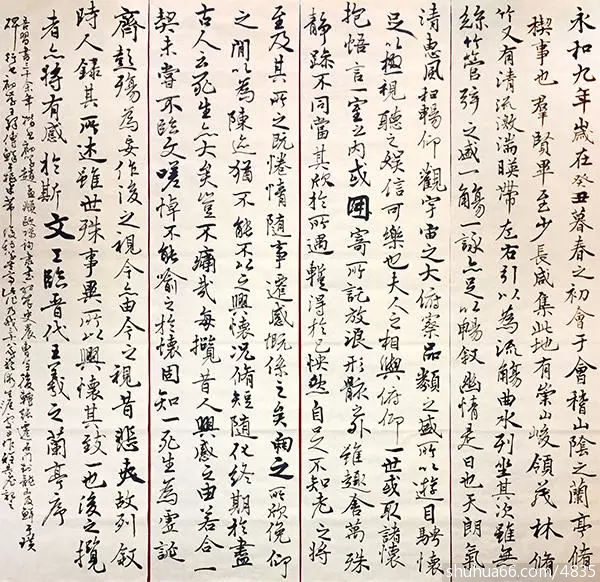 永和九年歲在癸丑暮春之初會于會稽山陰之蘭亭脩
禊事也羣賢畢至少長咸集此地有崇山峻領茂林脩
竹又有清流激湍暎帶左右引以為流觴曲水列坐其次雖無
絲竹管弦之盛一觴一詠亦足以暢叙幽情是日也天朗氣
清惠風和暢仰觀宇宙之大俯察品類之盛所以遊目騁懷
足以極視聽之娛信可樂也夫人之相與俯仰一世或取諸懷
抱悟言一室之內或因寄所託放浪形骸之外雖趣舍萬殊
靜躁不同當其欣於所遇輒得於己怏然自足不知老之將
至及其所之既惓情隨事遷感慨係之矣向之所欣俛仰
之間以為陳迹猶不能不以之興懷況脩短隨化終期於盡
古人云死生亦大矣豈不痛哉每攬昔人興感之由若合一
契未嘗不臨文嗟悼不能喻之於懷固知一死生為虛誕
齊彭殤為妄作後之視今亦由今之視昔悲夫故列叙
時人錄其所述雖世殊事異所以興懷其致一也後之攬
者亦將有感於斯文 臨晉代王羲之蘭亭序
shuhua66.com/4835